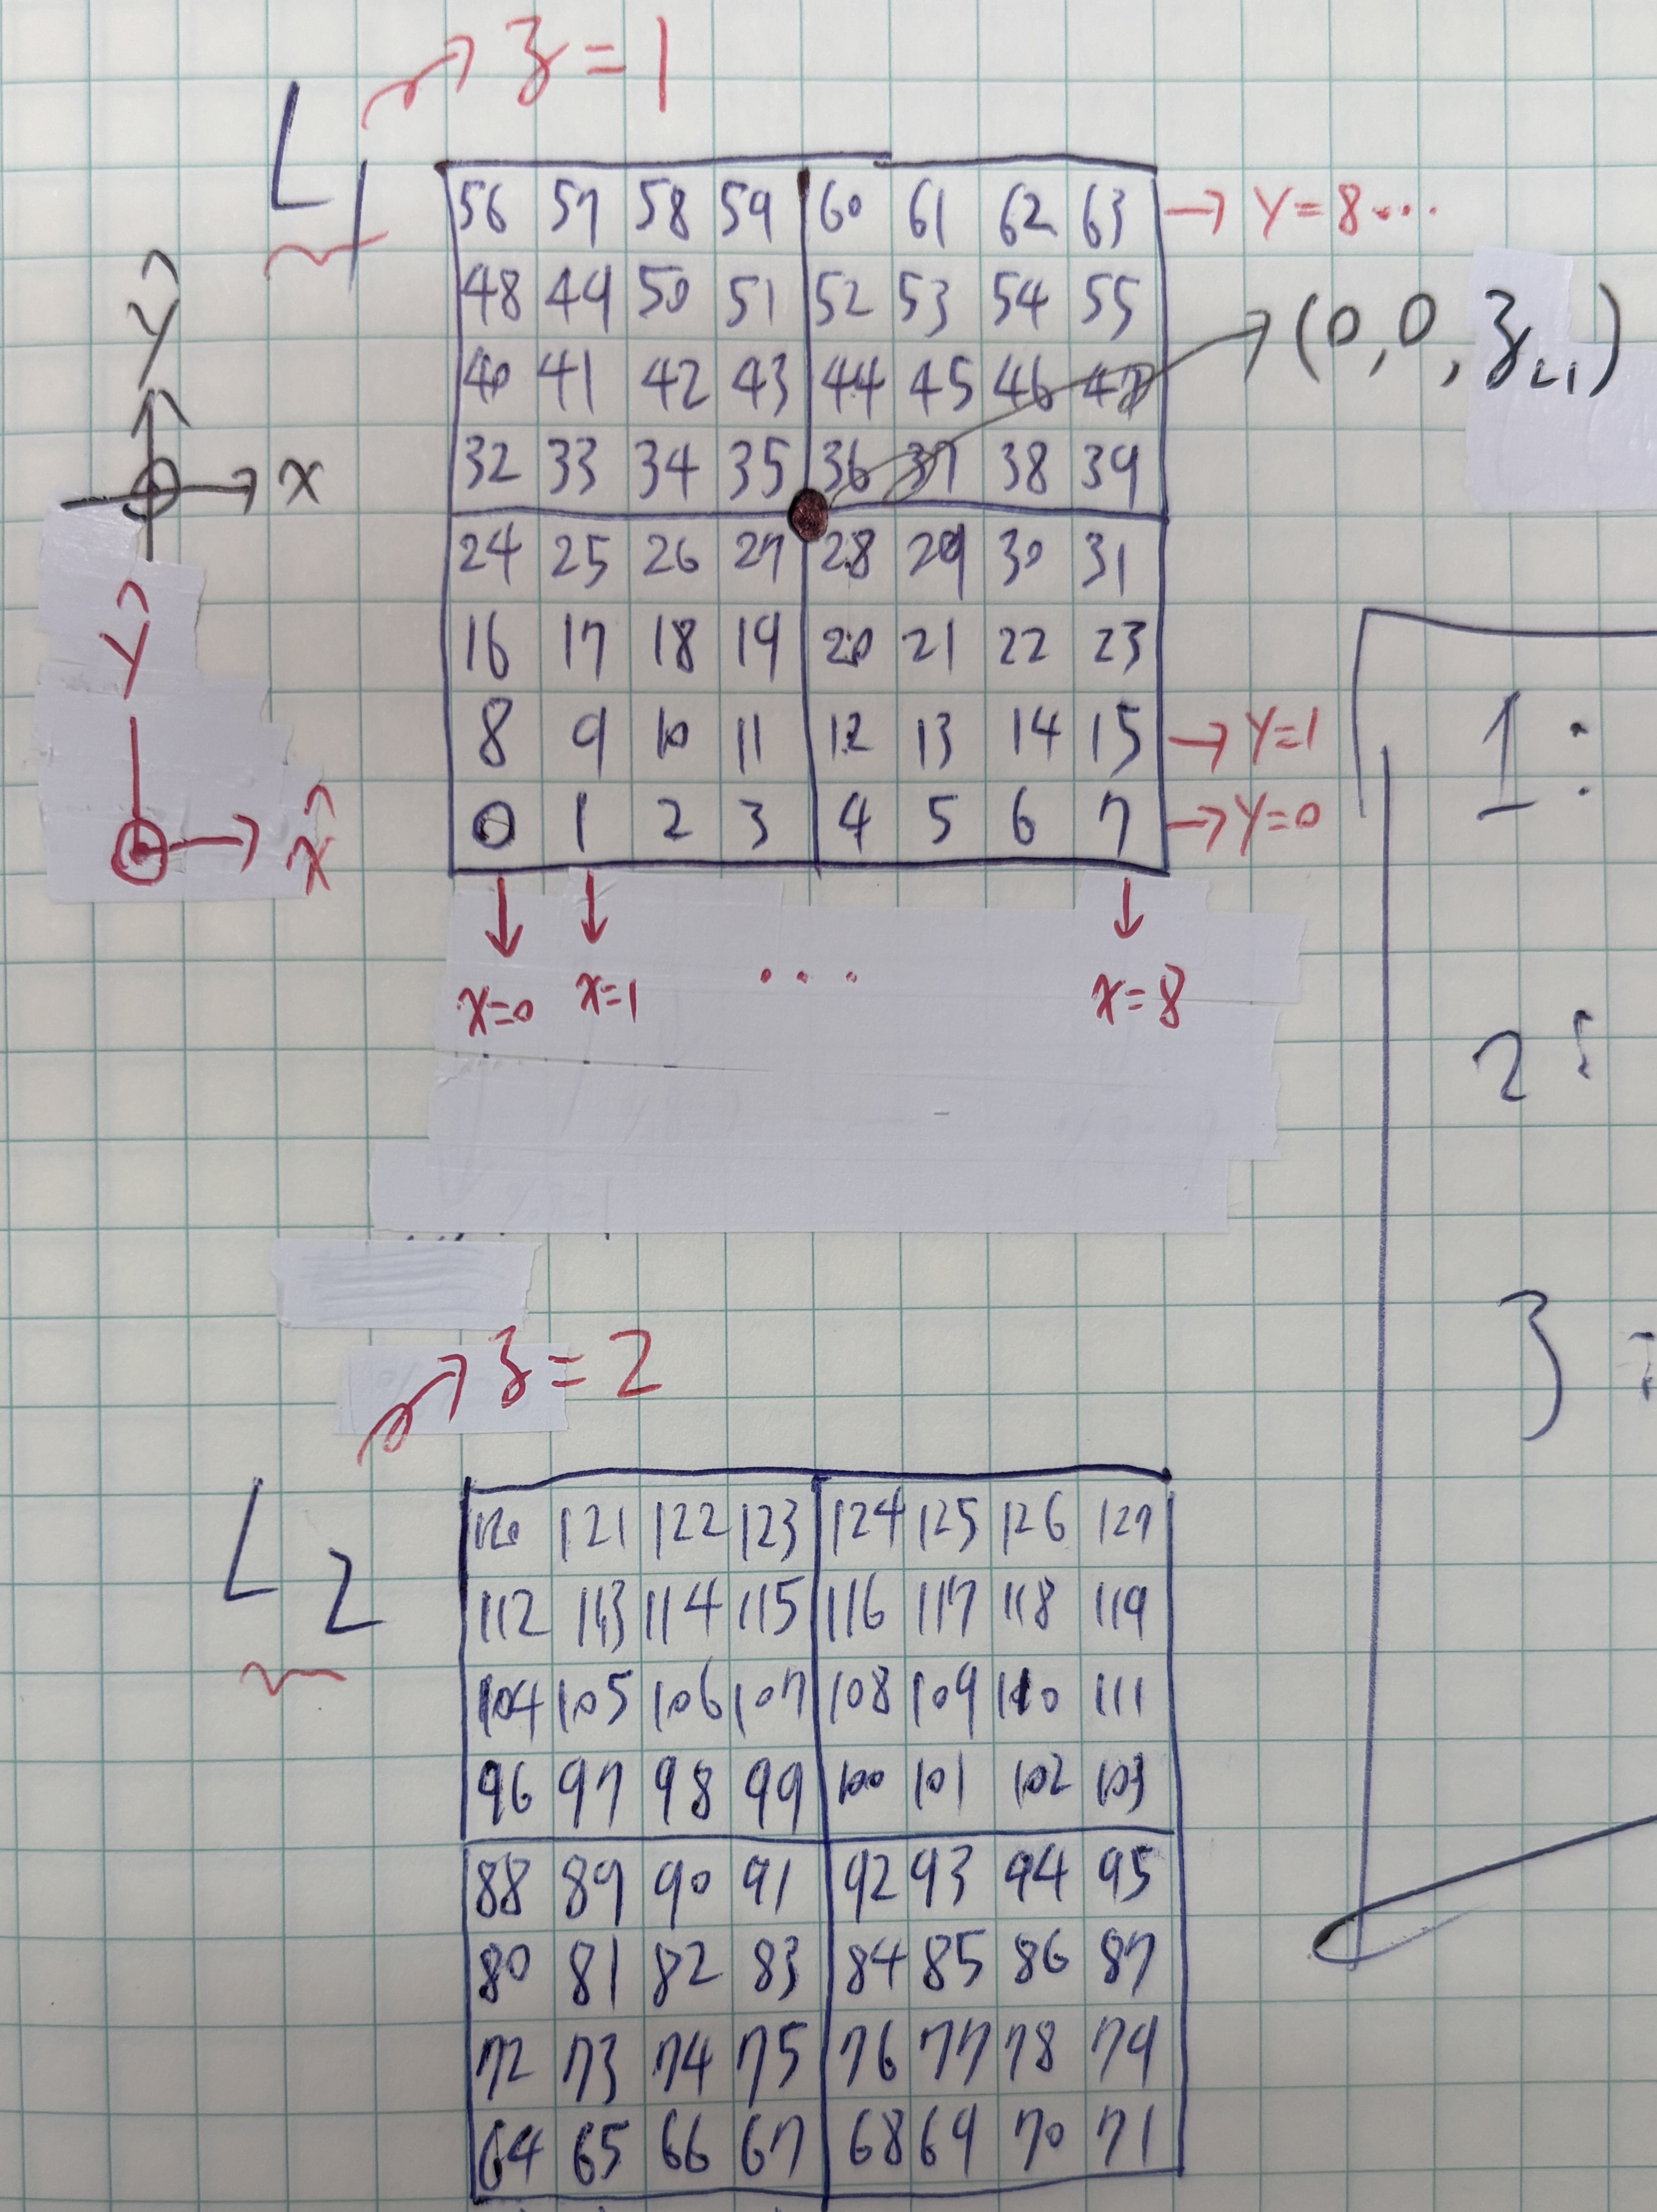 L1 → z = 1
56 57 58 59 60 61 62 63 → Y = 8 ...
48 49 50 51 52 53 54 55
→ (0, 0, zL1)
ŷ
40 41 42 43 44 45 46 47
32 33 34 35 36 37 38 39
→ x
24 25 26 27 28 29 30 31
ŷ
16 17 18 19 20 21 22 23
8 9 10 11 12 13 14 15 → Y=1
1:
0 1 2 3 4 5 6 7 → Y=0
→ x̂
↓ ↓ ↓
x=0 x=1 ... x=8
2:
3:
L2 → z = 2
120 121 122 123 124 125 126 127
112 113 114 115 116 117 118 119
104 105 106 107 108 109 110 111
96 97 98 99 100 101 102 103
88 89 90 91 92 93 94 95
80 81 82 83 84 85 86 87
72 73 74 75 76 77 78 79
64 65 66 67 68 69 70 71